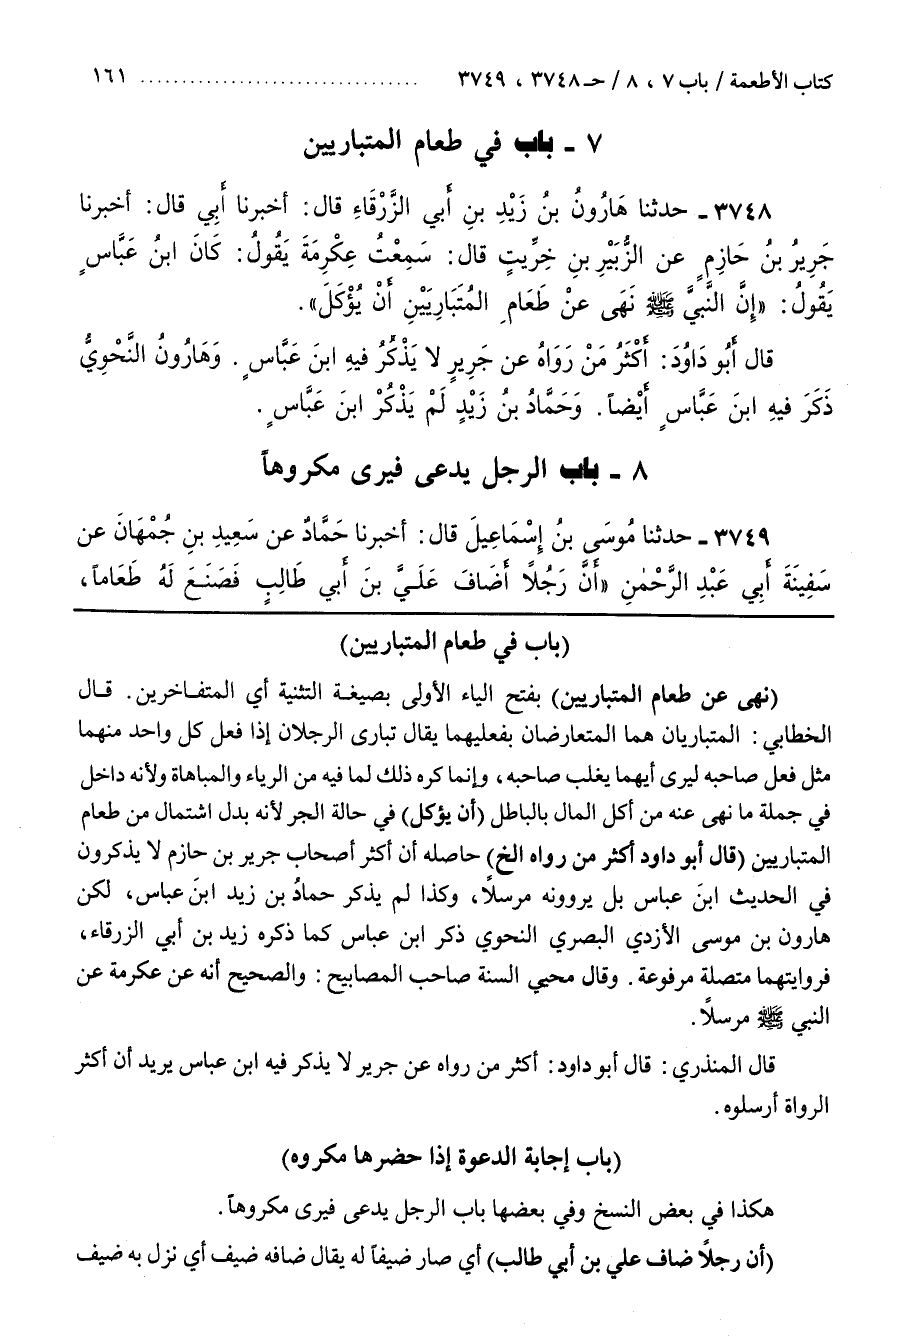 كتاب الأطعمة / باب ٧ ، ٨ / حـ ٣٧٤٨ ، ٣٧٤٩ ................................. ١٦١
٧ ـ باب في طعام المتباريين
٣٧٤٨ ـ حدثنا هَارُونُ بنُ زَيْدِ بنِ أَبي الزَّرْقَاءِ قال: أخبرنا أَبِي قال: أخبرنا
جَرِيرُ بنُ حَازِمٍ عن الزُّبَيْرِ بنِ خِرِّيتٍ قال: سَمِعْتُ عِكْرِمَةَ يَقُولُ: كَانَ ابنُ عَبَّاسٍ
يَقُولُ: «إنَّ النَّبيَّ ﷺ نَهَى عنْ طَعَامِ المُتَبَارِيَيْنِ أَنْ يُؤْكَلَ».
قال أَبُو دَاوُدَ: أَكْثَرُ مَنْ رَوَاهُ عن جَرِيرٍ لا يَذْكُرُ فيهِ ابنَ عَبَّاسٍ. وَهَارُونُ النَّحْوِيُّ
ذَكَرَ فيهِ ابنَ عَبَّاسٍ أَيْضاً. وَحَمَّادُ بنُ زَيْدٍ لَمْ يَذْكُرْ ابنَ عَبَّاسٍ.
٨ ـ باب الرجل يدعى فيرى مكروهاً
٣٧٤٩ ـ حدثنا مُوسَى بنُ إسْمَاعِيلَ قال: أخبرنا حَمَّادٌ عن سَعِيدِ بنِ جُمْهَانَ عن
سَفِينَةَ أَبِي عَبْدِ الرَّحْمٰنِ «أَنَّ رَجُلًا أَضَافَ عَلَيَّ بنَ أَبي طَالِبٍ فَصَنَعَ لَهُ طَعَاماً،
(باب في طعام المتباريين)
(نهى عن طعام المتباريين) بفتح الياء الأولى بصيغة التثنية أي المتفاخرين. قال
الخطابي: المتباريان هما المتعارضان بفعليهما يقال تبارى الرجلان إذا فعل كل واحد منهما
مثل فعل صاحبه ليرى أيهما يغلب صاحبه، وإنما كره ذلك لما فيه من الرياء والمباهاة ولأنه داخل
في جملة ما نهى عنه من أكل المال بالباطل (أن يؤكل) في حالة الجر لأنه بدل اشتمال من طعام
المتباريين (قال أبو داود أكثر من رواه الخ) حاصله أن أكثر أصحاب جرير بن حازم لا يذكرون
في الحديث ابنَ عباس بل يروونه مرسلًا، وكذا لم يذكر حمادُ بن زيد ابنَ عباس، لكن
هارون بن موسى الأزدي البصري النحوي ذكر ابن عباس كما ذكره زيد بن أبي الزرقاء،
فروايتهما متصلة مرفوعة. وقال محيي السنة صاحب المصابيح: والصحيح أنه عن عكرمة عن
النبي ﷺ مرسلًا.
قال المنذري: قال أبو داود: أكثر من رواه عن جرير لا يذكر فيه ابن عباس يريد أن أكثر
الرواة أرسلوه.
(باب إجابة الدعوة إذا حضرها مكروه)
هكذا في بعض النسخ وفي بعضها باب الرجل يدعى فيرى مكروهاً.
(أن رجلًا ضاف علي بن أبي طالب) أي صار ضيفاً له يقال ضافه ضيف أي نزل به ضيف